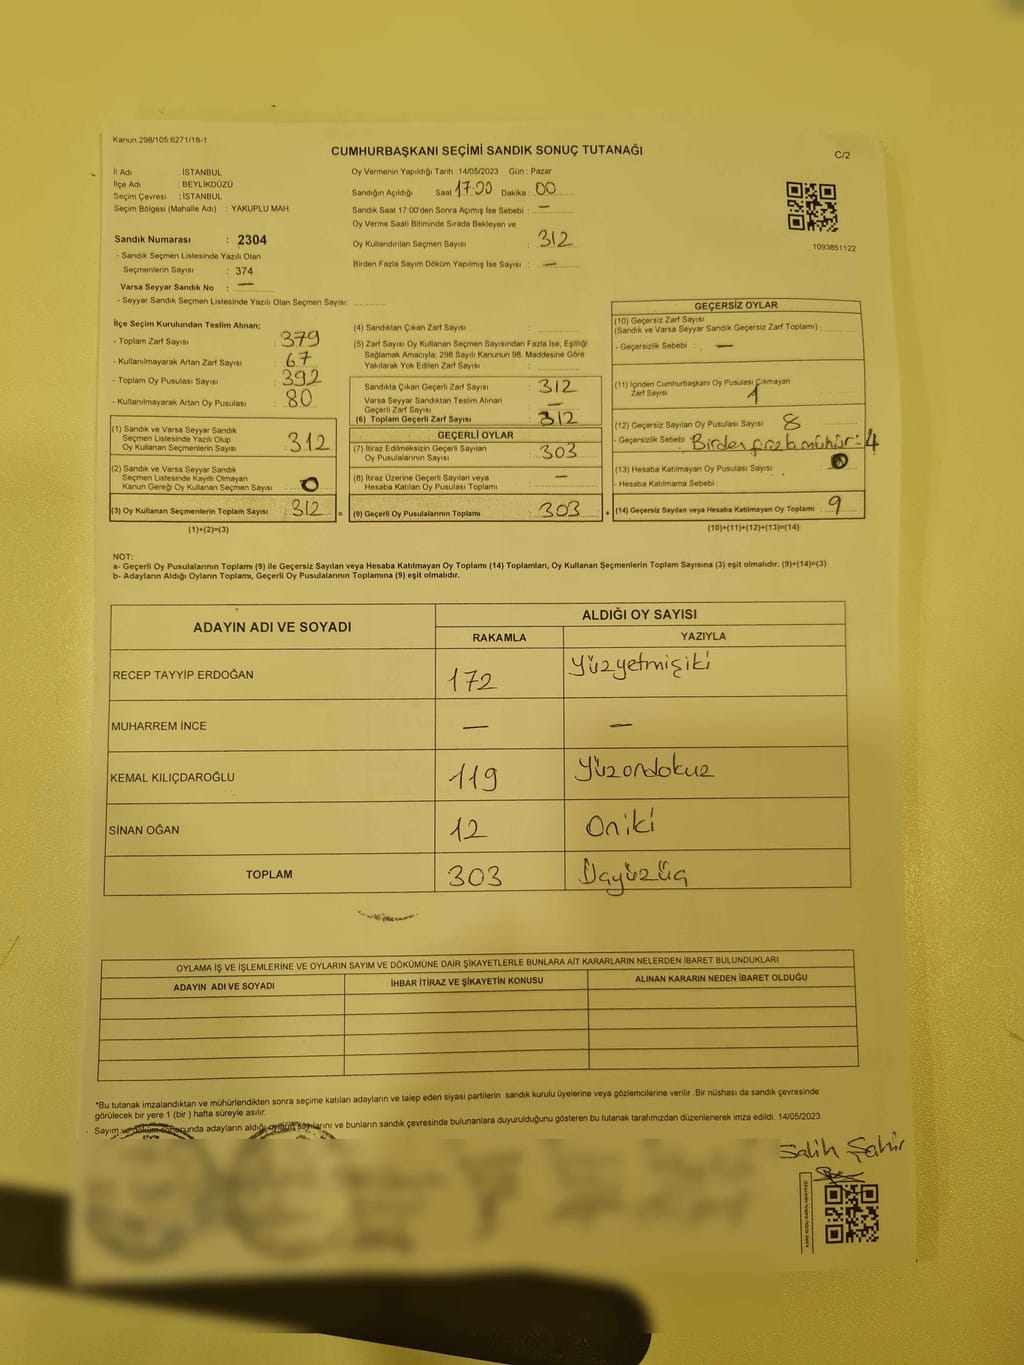 Kanun:298/105:6271/18-1
CUMHURBAŞKANI SEÇİMİ SANDIK SONUÇ TUTANAĞI
C/2
İl Adı : İSTANBUL
İlçe Adı : BEYLİKDÜZÜ
Seçim Çevresi : İSTANBUL
Seçim Bölgesi (Mahalle Adı) : YAKUPLU MAH.
Sandık Numarası : 2304
- Sandık Seçmen Listesinde Yazılı Olan
Seçmenlerin Sayısı : 374
Varsa Seyyar Sandık No : —
- Seyyar Sandık Seçmen Listesinde Yazılı Olan Seçmen Sayısı:
Oy Vermenin Yapıldığı Tarih : 14/05/2023 Gün : Pazar
Sandığın Açıldığı Saat 17:00 Dakika : 00
Sandık Saat 17:00'den Sonra Açımış İse Sebebi : —
Oy Verme Saati Bitiminde Sırada Bekleyen ve
Oy Kullandırılan Seçmen Sayısı : 312
Birden Fazla Sayım Döküm Yapılmış İse Sayısı : —
1093851122
İlçe Seçim Kurulundan Teslim Alınan;
- Toplam Zarf Sayısı : 379
- Kullanılmayarak Artan Zarf Sayısı : 67
- Toplam Oy Pusulası Sayısı : 392
- Kullanılmayarak Artan Oy Pusulası : 80
(1) Sandık ve Varsa Seyyar Sandık
Seçmen Listesinde Yazılı Olup
Oy Kullanan Seçmenlerin Sayısı : 312
(2) Sandık ve Varsa Seyyar Sandık
Seçmen Listesinde Kayıtlı Olmayan
Kanun Gereği Oy Kullanan Seçmen Sayısı : 0
(3) Oy Kullanan Seçmenlerin Toplam Sayısı : 312
(1)+(2)=(3)
(4) Sandıktan Çıkan Zarf Sayısı :
(5) Zarf Sayısı Oy Kullanan Seçmen Sayısından Fazla İse, Eşitliği
Sağlamak Amacıyla; 298 Sayılı Kanunun 98. Maddesine Göre
Yakılarak Yok Edilen Zarf Sayısı :
Sandıkta Çıkan Geçerli Zarf Sayısı : 312
Varsa Seyyar Sandıktan Teslim Alınan
Geçerli Zarf Sayısı : —
(6) Toplam Geçerli Zarf Sayısı : 312
GEÇERLİ OYLAR
(7) İtiraz Edilmeksizin Geçerli Sayılan
Oy Pusulalarının Sayısı : 303
(8) İtiraz Üzerine Geçerli Sayılan veya
Hesaba Katılan Oy Pusulası Toplamı : —
(9) Geçerli Oy Pusulalarının Toplamı : 303
GEÇERSİZ OYLAR
(10) Geçersiz Zarf Sayısı
(Sandık ve Varsa Seyyar Sandık Geçersiz Zarf Toplamı) :
- Geçersizlik Sebebi : —
(11) İçinden Cumhurbaşkanı Oy Pusulası Çıkmayan
Zarf Sayısı : 1
(12) Geçersiz Sayılan Oy Pusulası Sayısı : 8
- Geçersizlik Sebebi : Birden fazla mühür: 4
(13) Hesaba Katılmayan Oy Pusulası Sayısı :
- Hesaba Katılmama Sebebi :
(14) Geçersiz Sayılan veya Hesaba Katılmayan Oy Toplamı : 9
(10)+(11)+(12)+(13)=(14)
NOT:
a- Geçerli Oy Pusulalarının Toplamı (9) ile Geçersiz Sayılan veya Hesaba Katılmayan Oy Toplamı (14) Toplamları, Oy Kullanan Seçmenlerin Toplam Sayısına (3) eşit olmalıdır. (9)+(14)=(3)
b- Adayların Aldığı Oyların Toplamı, Geçerli Oy Pusulalarının Toplamına (9) eşit olmalıdır.
ADAYIN ADI VE SOYADI
ALDIĞI OY SAYISI
RAKAMLA YAZIYLA
RECEP TAYYİP ERDOĞAN 172 Yüzyetmişiki
MUHARREM İNCE — —
KEMAL KILIÇDAROĞLU 119 Yüzondokuz
SİNAN OĞAN 12 Oniki
TOPLAM 303 Üçyüzüç
OYLAMA İŞ VE İŞLEMLERİNE VE OYLARIN SAYIM VE DÖKÜMÜNE DAİR ŞİKAYETLERLE BUNLARA AİT KARARLARIN NELERDEN İBARET BULUNDUKLARI
ADAYIN ADI VE SOYADI İHBAR İTİRAZ VE ŞİKAYETİN KONUSU ALINAN KARARIN NEDEN İBARET OLDUĞU
*Bu tutanak imzalandıktan ve mühürlendikten sonra seçime katılan adayların ve talep eden siyasi partilerin sandık kurulu üyelerine veya gözlemcilerine verilir .Bir nüshası da sandık çevresinde
görülecek bir yere 1 (bir ) hafta süreyle asılır.
Sayım ve döküm sonucunda adayların aldığı oyların sayılarını ve bunların sandık çevresinde bulunanlara duyurulduğunu gösteren bu tutanak tarafımızdan düzenlenerek imza edildi. 14/05/2023
Salih Şahin
KARE KODU KARALAMAYINIZ